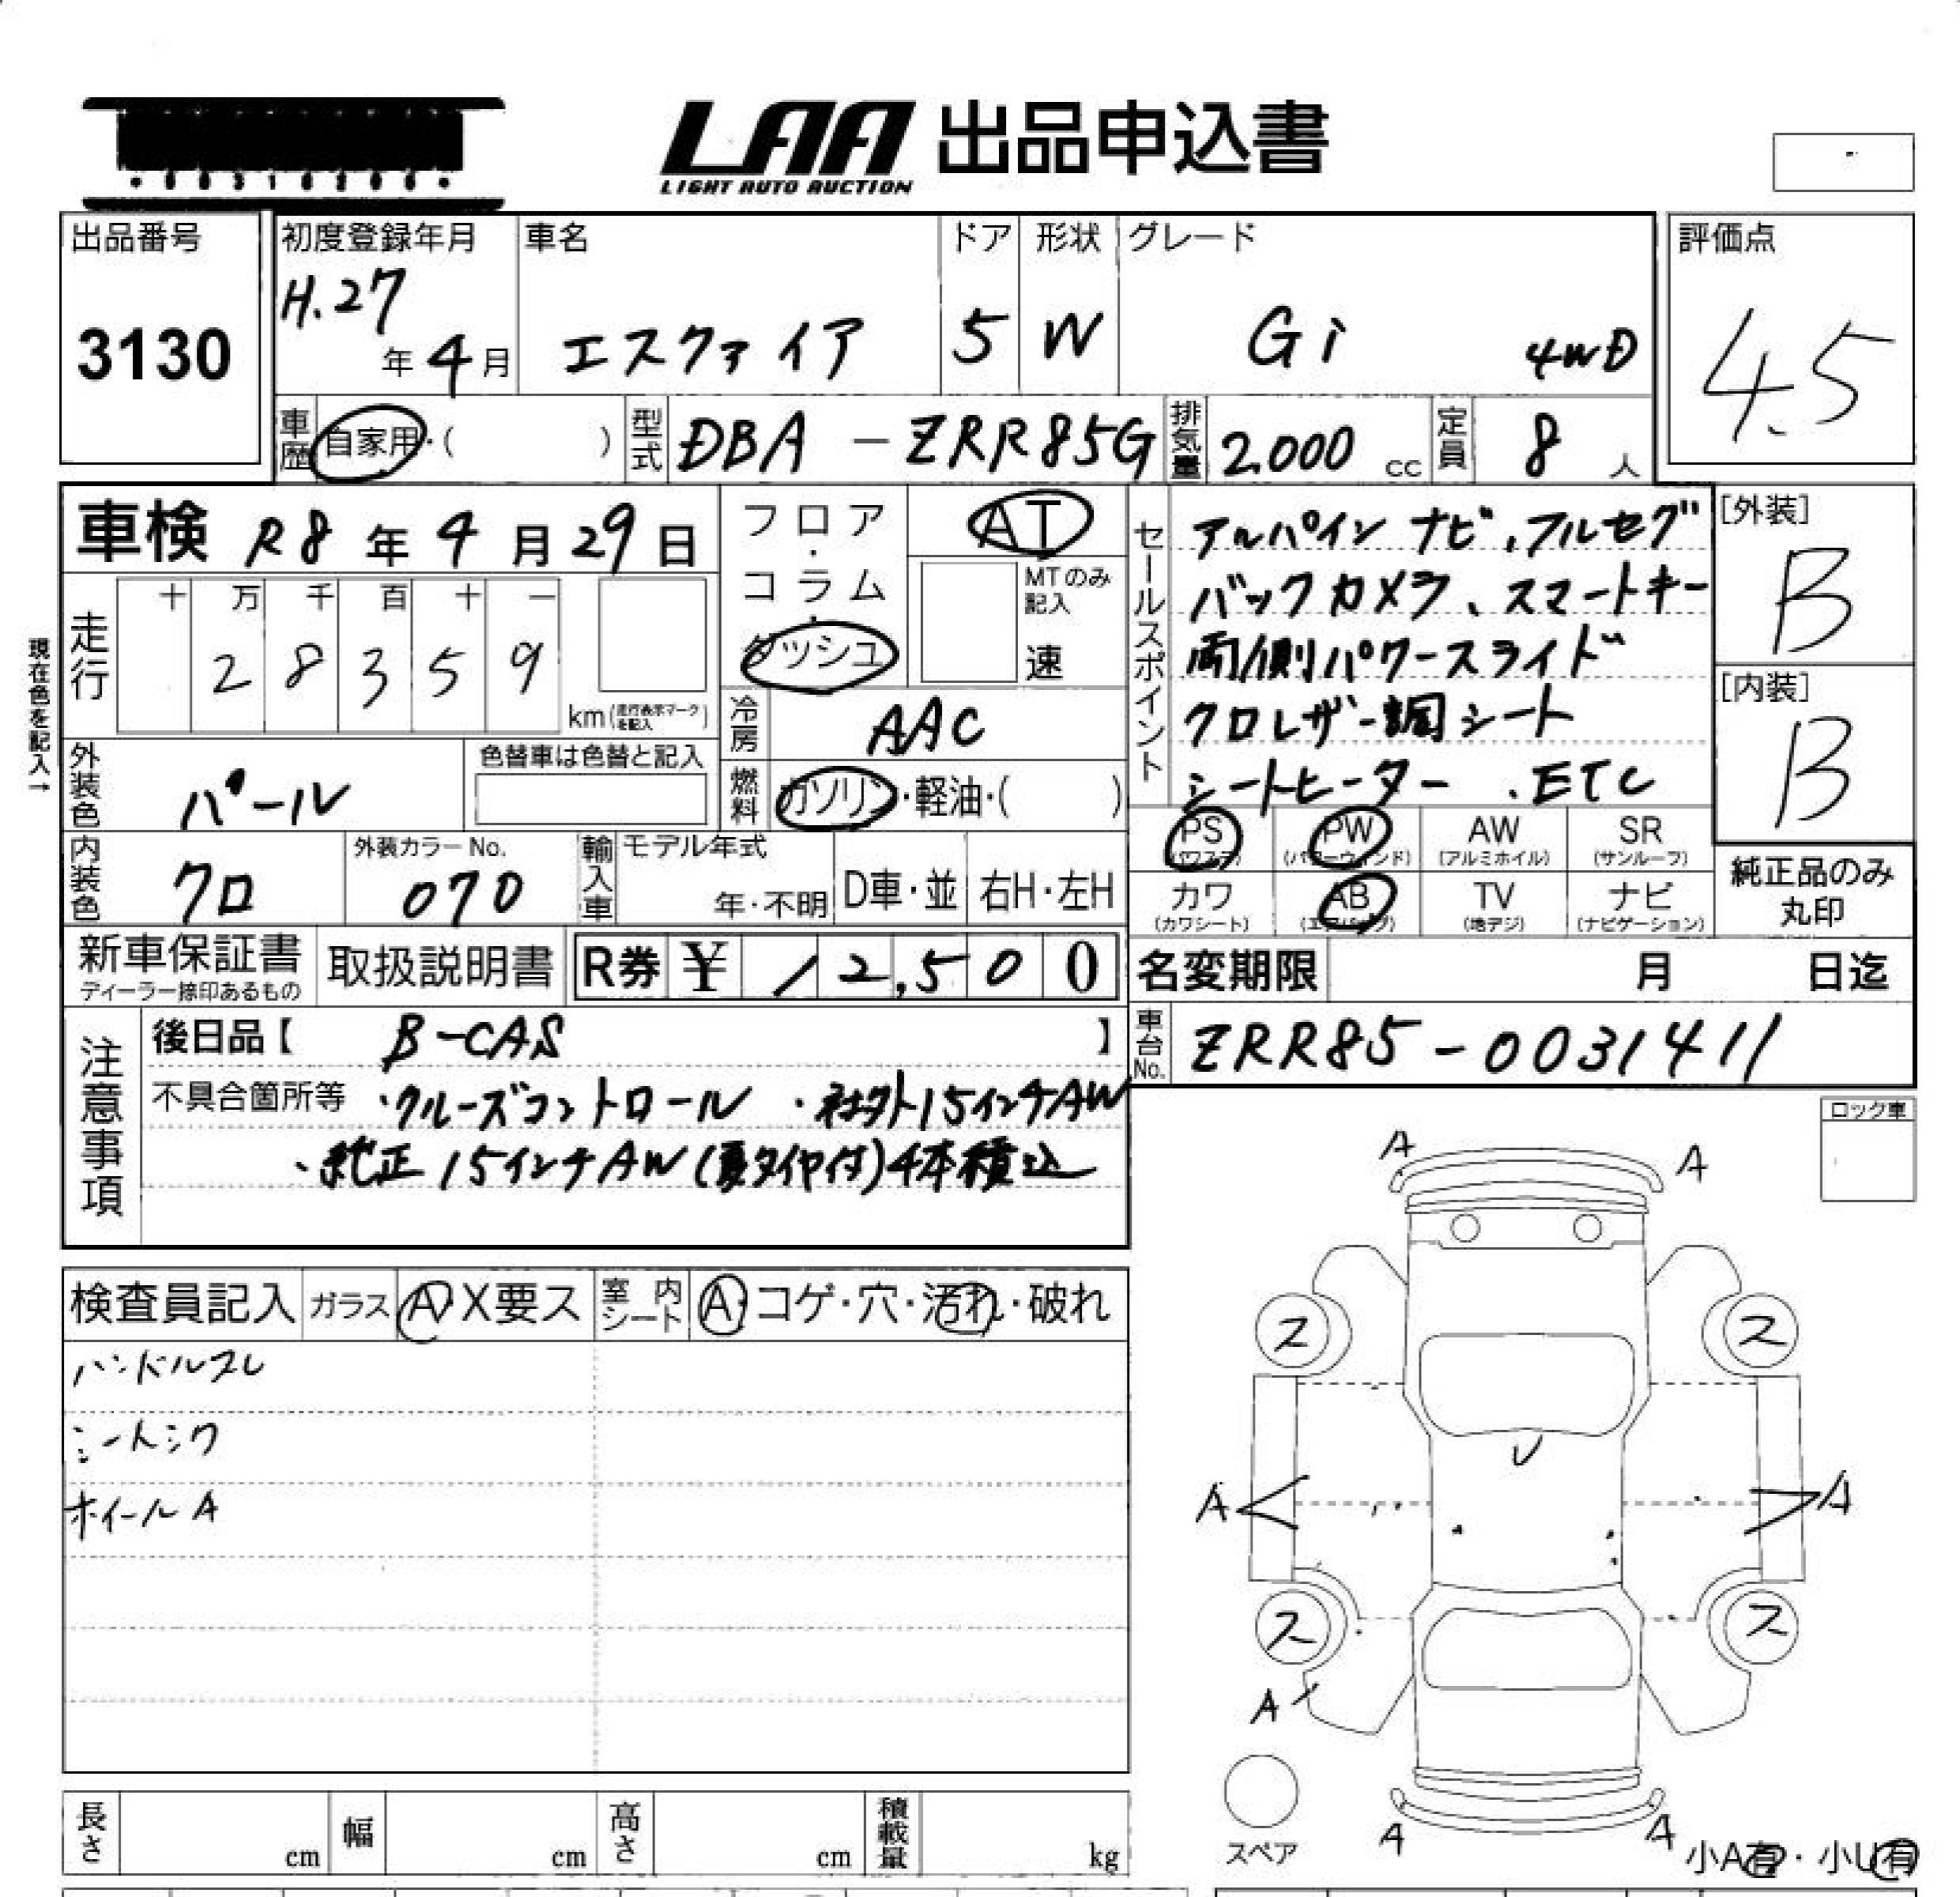 LAA 出品申込書
LIGHT AUTO AUCTION
出品番号
3130
初度登録年月
H.27年 4月
車名
エスクァイア
ドア
5
形状
W
グレード
Gi 4WD
評価点
4.5
車歴 自家用・( )
型式 DBA-ZRR85G
排気量 2.000 cc
定員 8 人
車検 R8年 4月 29日
フロア・コラム・ダッシュ
AT
MTのみ記入
速
現在色を記入→
走行
十 万 千 百 十 一
2 8 3 5 9
km(走行表示マークを記入)
冷房 AAC
外装色 パール
色替車は色替と記入
燃料 ガソリン・軽油・( )
内装色 クロ
外装カラーNo.
070
輸入車 モデル年式
年・不明
D車・並
右H・左H
セールスポイント
アルパインナビ、フルセグ
バックカメラ、スマートキー
両側パワースライド
クロレザー調シート
シートヒーター、ETC
[外装]
B
[内装]
B
PS (パワステ)
PW (パワーウインド)
AW (アルミホイル)
SR (サンルーフ)
カワ (カワシート)
AB (エアバッグ)
TV (地デジ)
ナビ (ナビゲーション)
純正品のみ
丸印
新車保証書
ディーラー捺印あるもの
取扱説明書
R券 ¥ 12,500
名変期限 月 日迄
車台No. ZRR85-0031411
注意事項
後日品【 B-CAS 】
不具合箇所等 ・クルーズコントロール ・社外15インチAW
・純正15インチAW(夏タイヤ付)4本積込
ロック車
検査員記入
ガラス A・X要ス
室内シート A・コゲ・穴・汚れ・破れ
ハンドルスレ
シートシワ
ホイールA
A A
ス ス
U
A A
ス ス
A
スペア
A A
小A有・小U有
長さ cm
幅 cm
高さ cm
積載量 kg